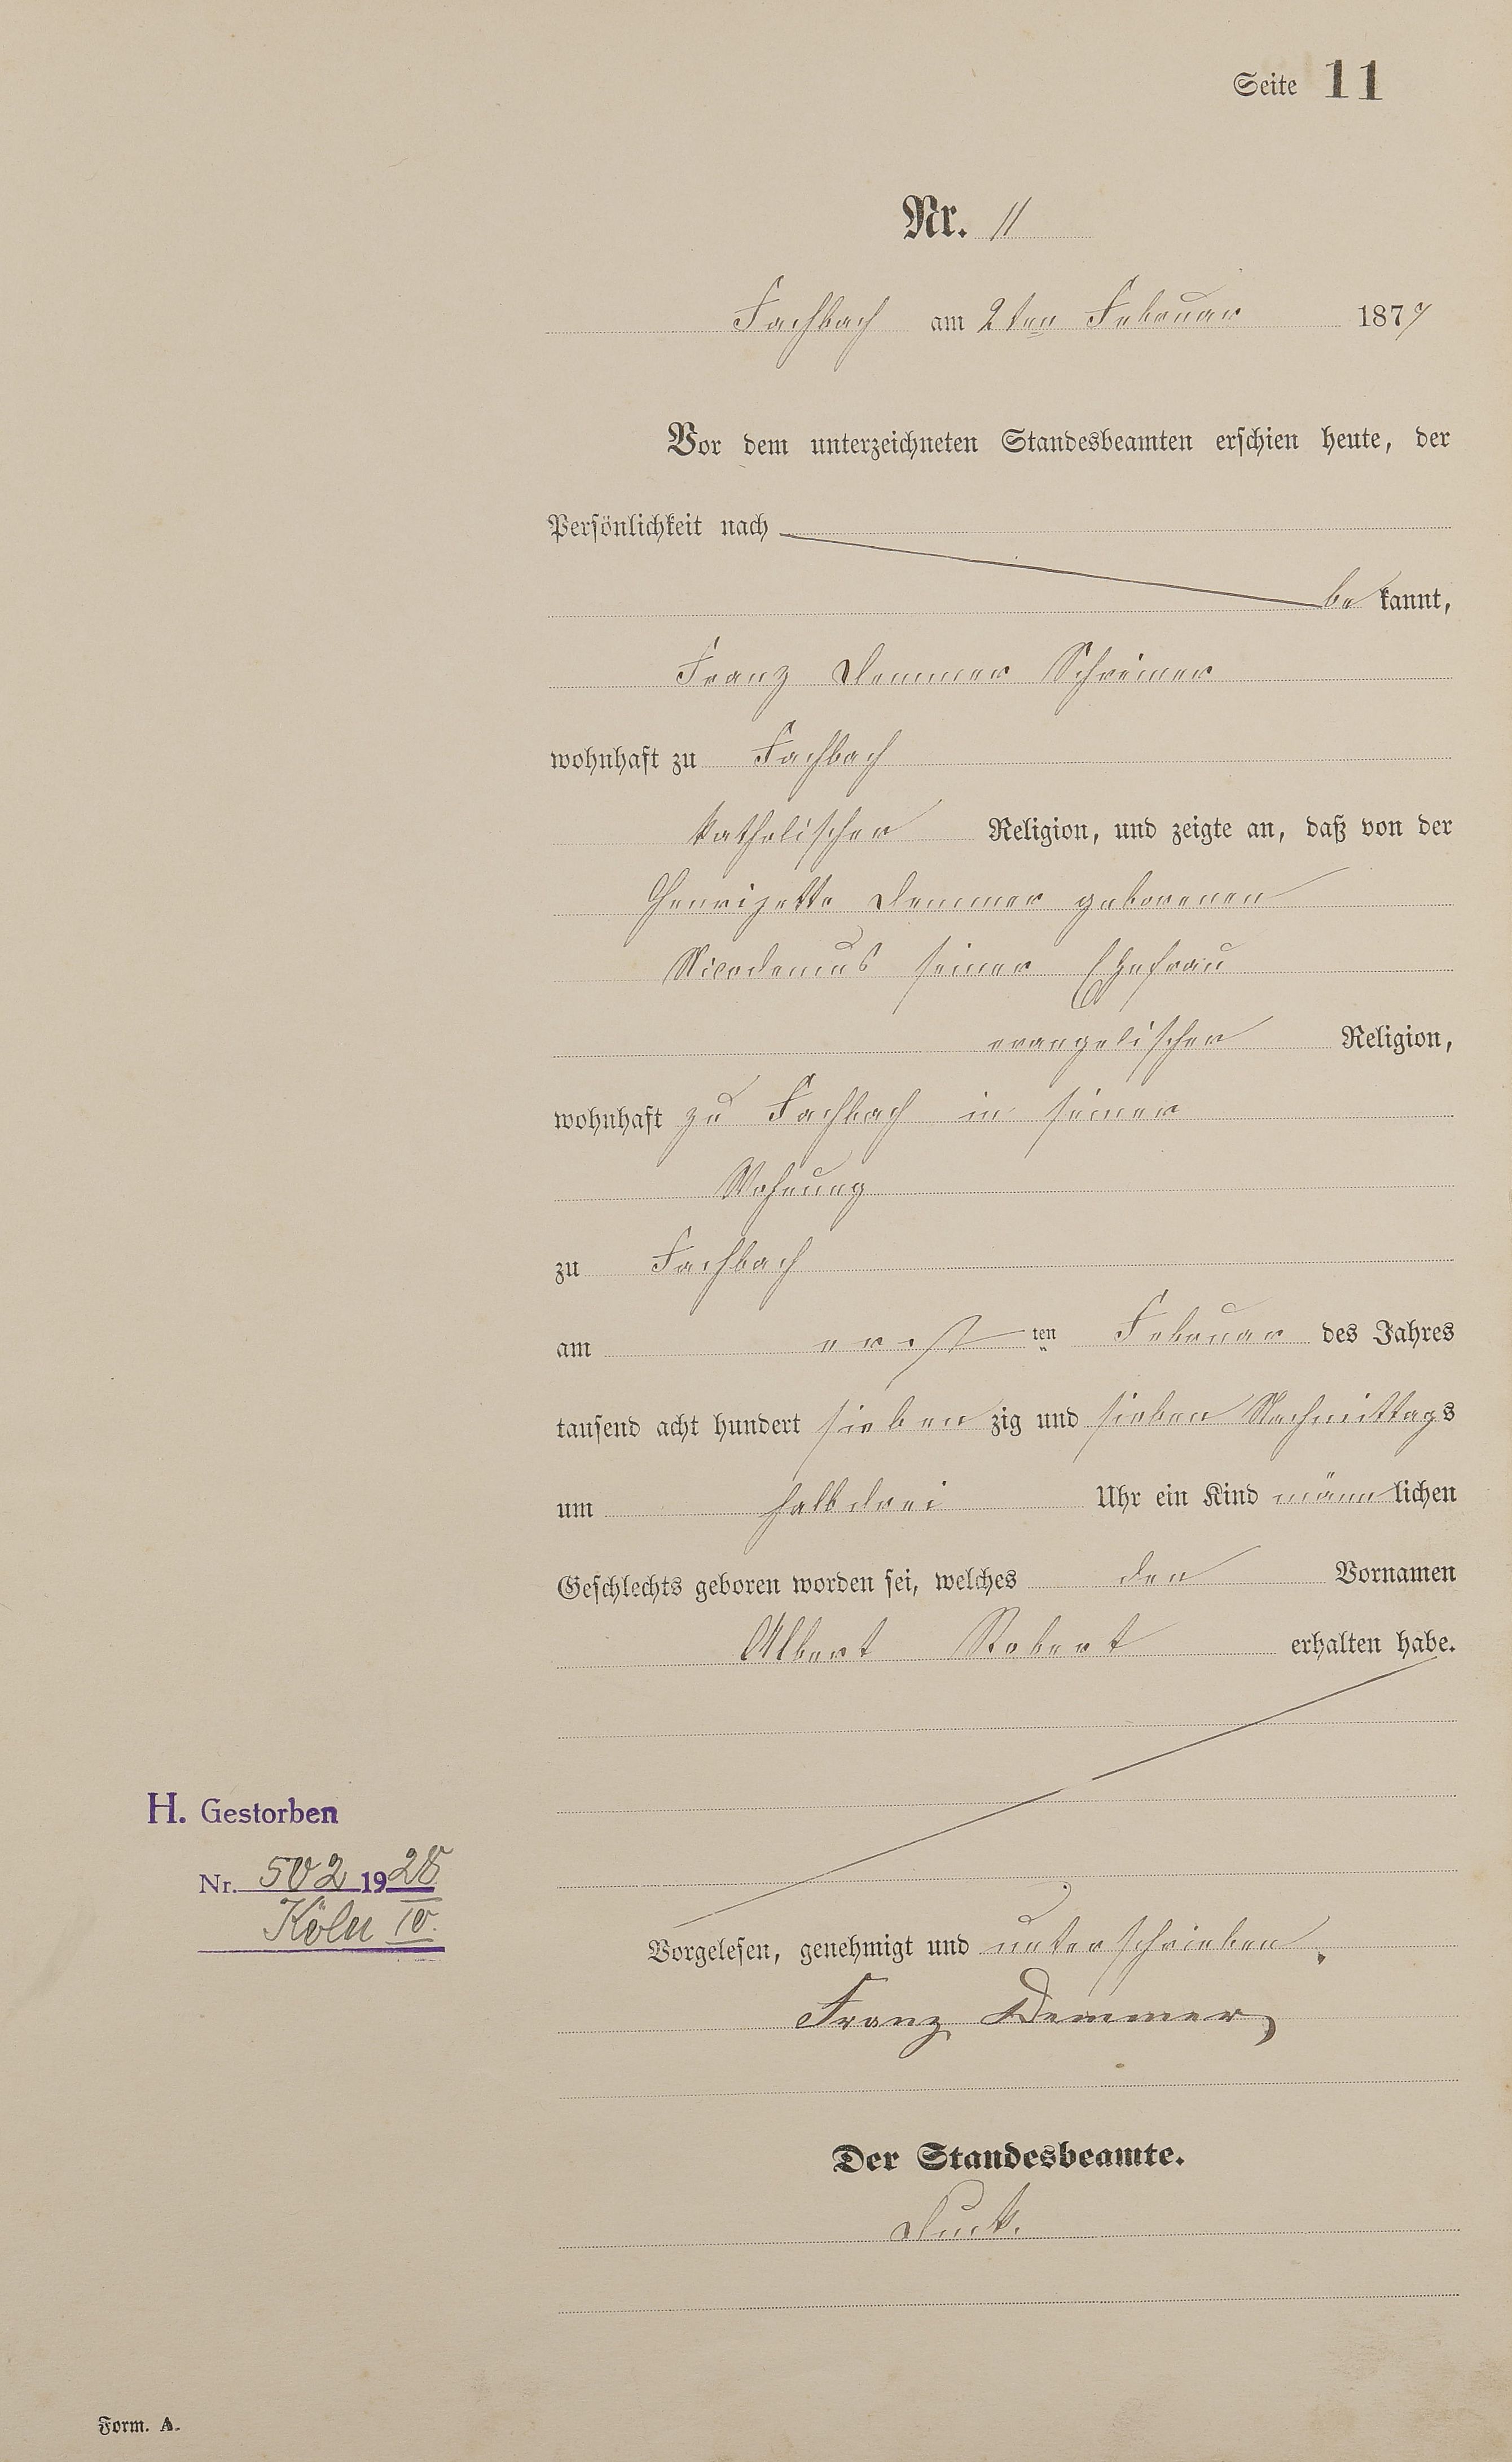 Seite 11
Nr. 11
Fachbach am 2ten Februar 1877
Vor dem unterzeichneten Standesbeamten erschien heute, der
Persönlichkeit nach
be kannt,
Franz Demmer Schreiner
wohnhaft zu Fachbach
katholischer Religion, und zeigte an, daß von der
Henrijette Demmer geborenen
Nicodemus seiner Ehefrau
evangelischer Religion,
wohnhaft zu Fachbach in seiner
Wohnung
zu Fachbach
am erst ten Februar des Jahres
tausend acht hundert sieben zig und sieben Nachmittags
um halb drei Uhr ein Kind männ lichen
Geschlechts geboren worden sei, welches den Vornamen
Albert Robert erhalten habe.
H. Gestorben
Nr. 502 1928
Köln IV.
Vorgelesen, genehmigt und unterschrieben.
Franz Demmer
Der Standesbeamte.
Form. A.